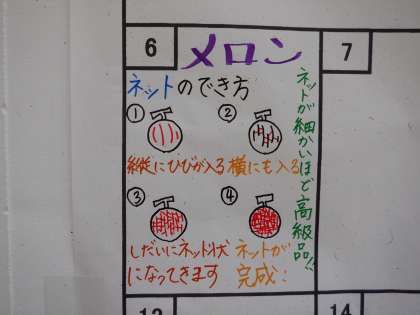 6
メロン
7
ネットのでき方
ネットが細かいほど高級品!!
①
②
縦にひびが入る
横にも入る
③
④
しだいにネット状
になってきます
ネットが
完成!
13
14